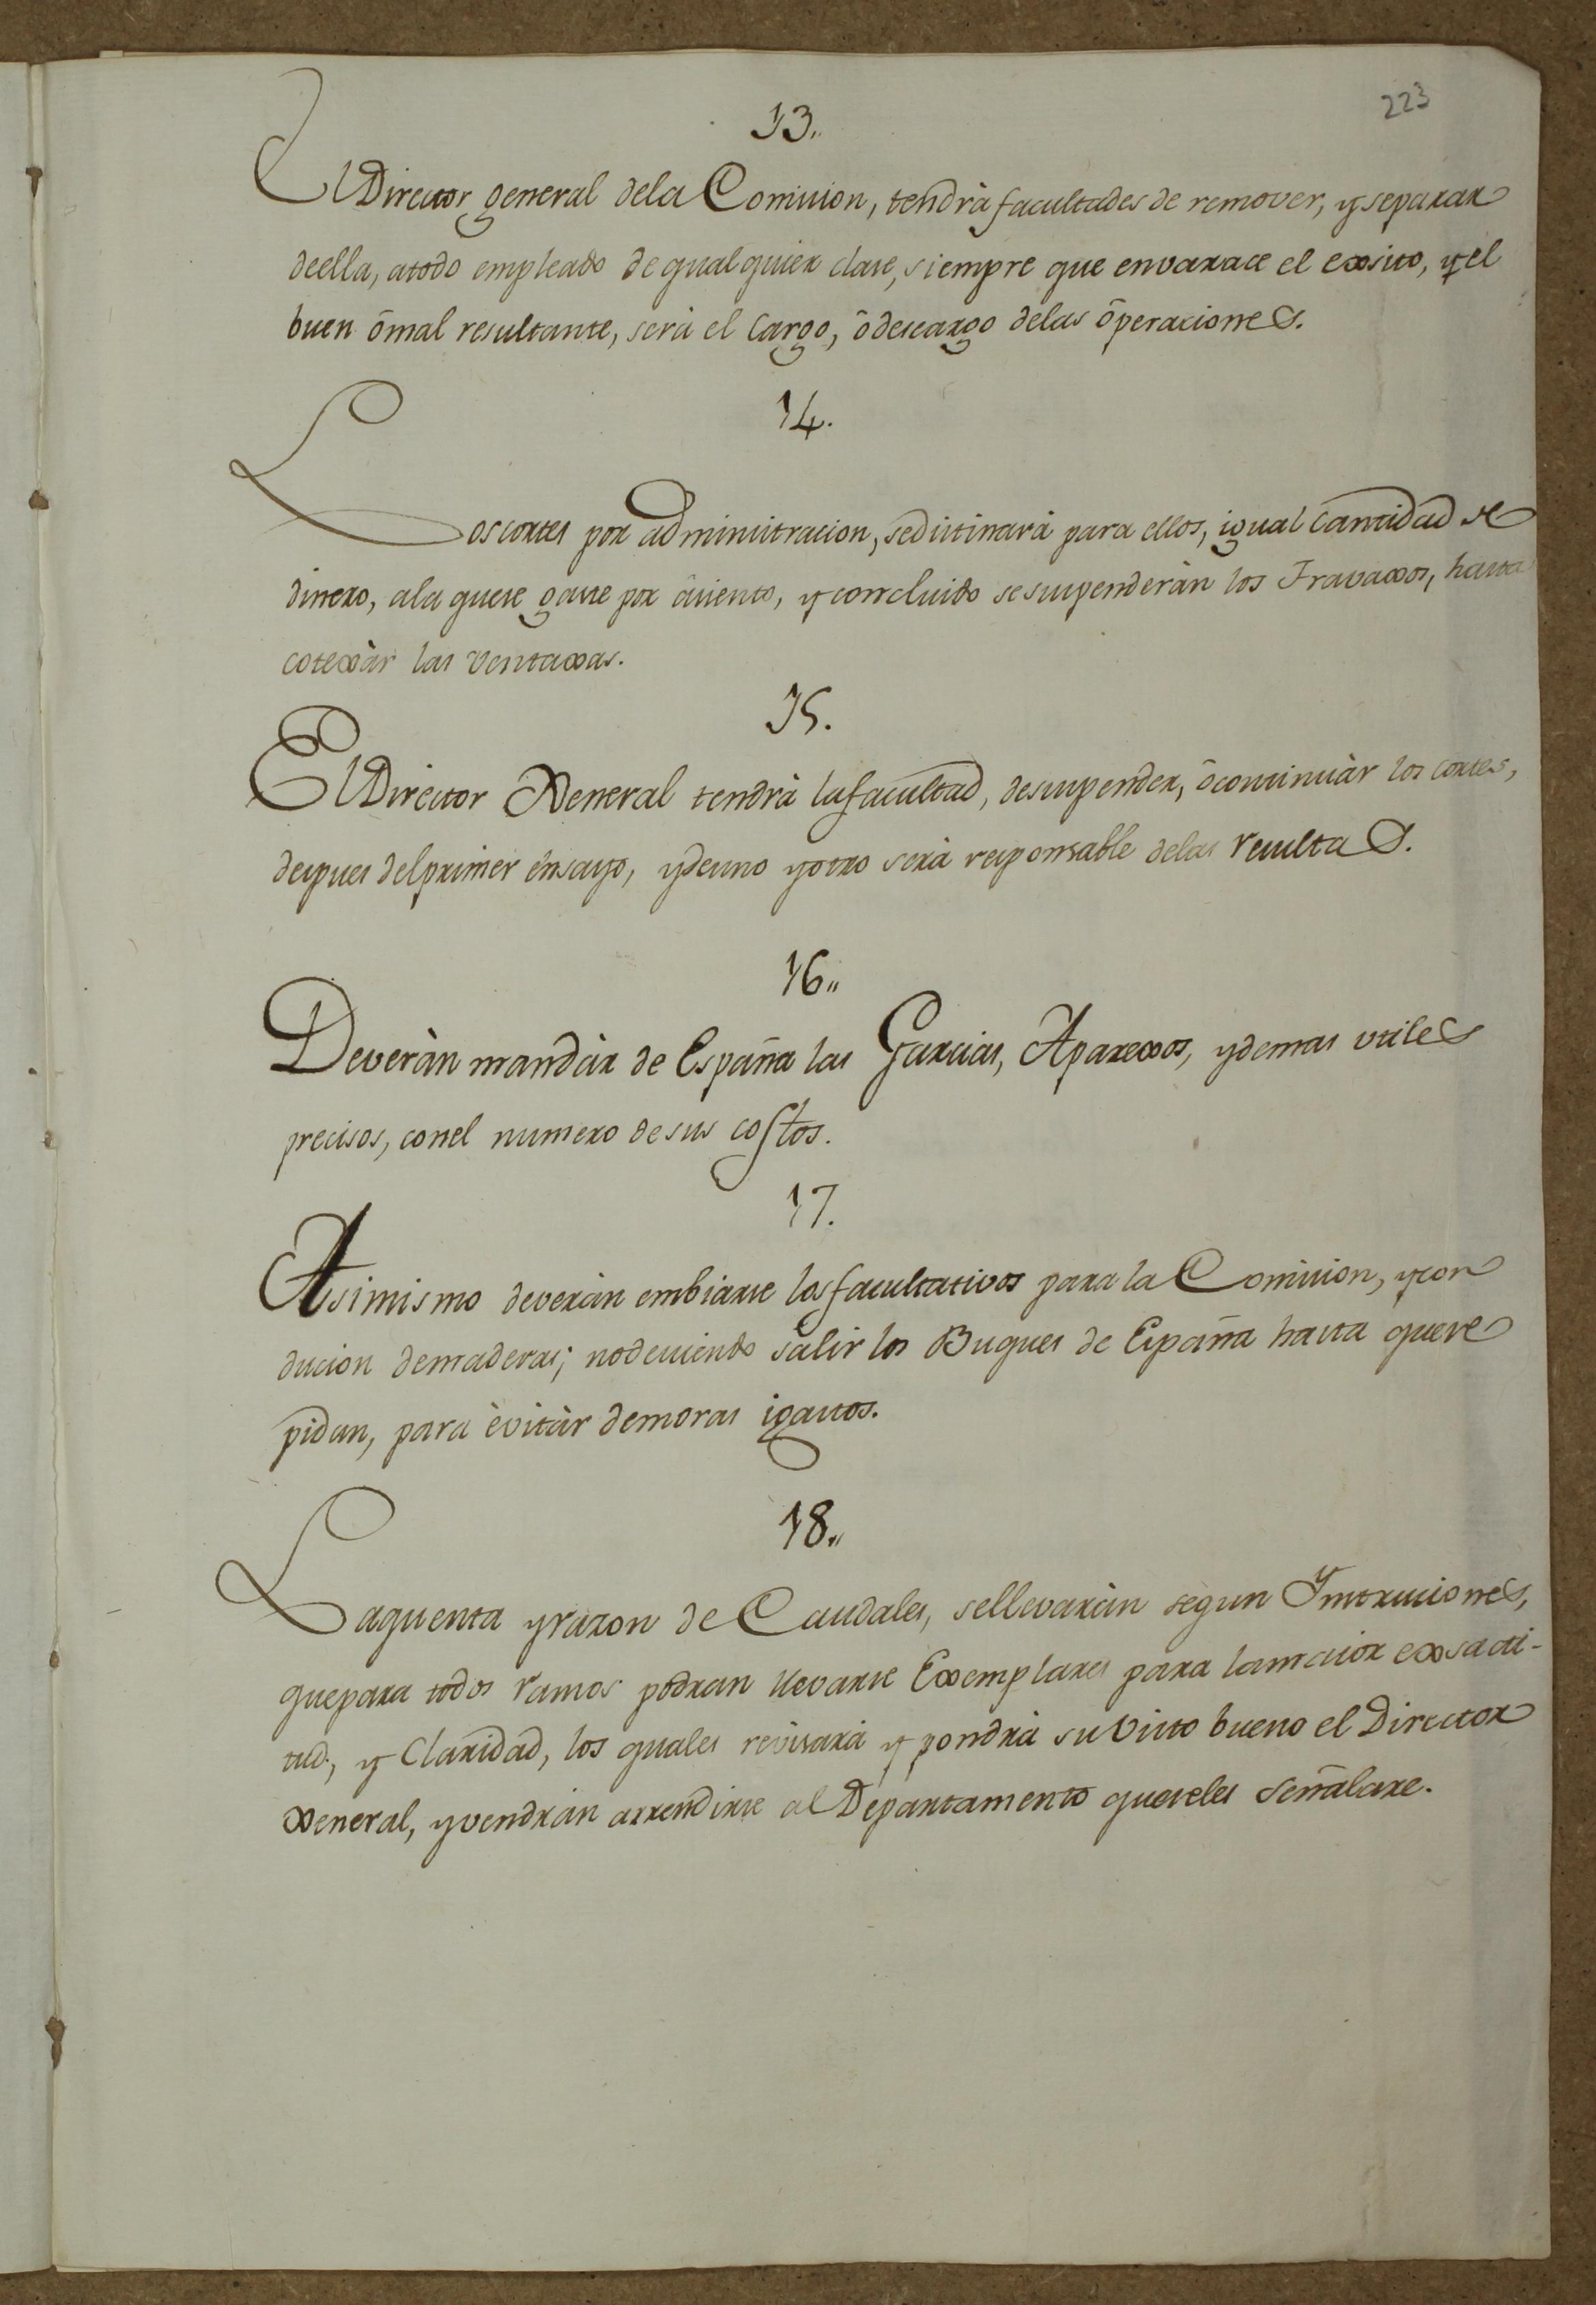 223
13.
El Director general dela Comision, tendrà facultades de remover, y separar
deella, atodo empleado de qualquier clase, siempre que envarace el exsito, y el
buen ómal resultante, serà el Cargo, ódescargo delas óperaciones.
14.
Los cortes por administracion, sedistinarà para ellos, igual Cantidad de
dinero, ala quese gaste por ásiento, y concluido se suspenderàn los Travaxos, hasta
cotexàr las ventaxas.
15.
El Director Xeneral tendrà la facultad, desuspender, ócontinuàr los cortes,
despues delprimer énsayo, ydeuno yotro serà responsable delas resultas.
16.,
Deveràn mandàr de España las Jarcias, Aparexos, ydemas utiles
precisos, conel numero de sus costos.
17.
Asimismo deveràn embiarse los facultativos para la Comision, ycon
ducion demaderas; nodeviendo salir los Buques de España hasta quese
pidan, para èvitàr demoras igastos.
18.,
Laquenta yrazon de Caudales, sellevaràn segun Instruciones,
quepara todos ramos podran llevarse Exemplares para lamaior exsacti-
tud, y Claridad, los quales revisarà y pondrà su Visto bueno el Director
Xeneral, yvendràn arrendirse al Departamento queseles señalare.